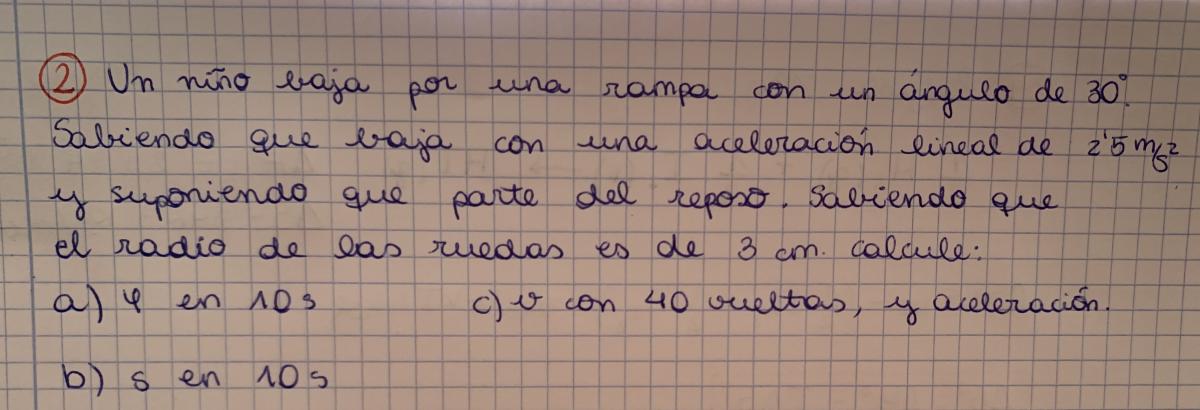 2 Un niño baja por una rampa con un ángulo de 30°.
Sabiendo que baja con una aceleración lineal de 2'5 m/s²
y suponiendo que parte del reposo. Sabiendo que
el radio de las ruedas es de 3 cm. calcule:
a) φ en 10 s c) v con 40 vueltas, y aceleración.
b) s en 10 s